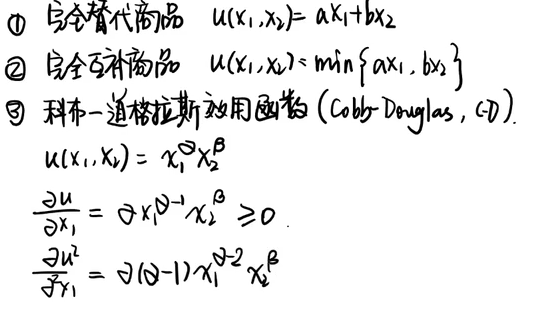 ① 完全替代商品 u(x₁,x₂)= ax₁+bx₂
② 完全互补商品 u(x₁,x₂)= min{ax₁, bx₂}
③ 科布-道格拉斯效用函数 (Cobb-Douglas, C-D).
u(x₁,x₂) = x₁^∂ x₂^β
∂u/∂x₁ = ∂x₁^(∂-1) x₂^β ≥0.
∂u²/∂²x₁ = ∂(∂-1)x₁^(∂-2) x₂^β